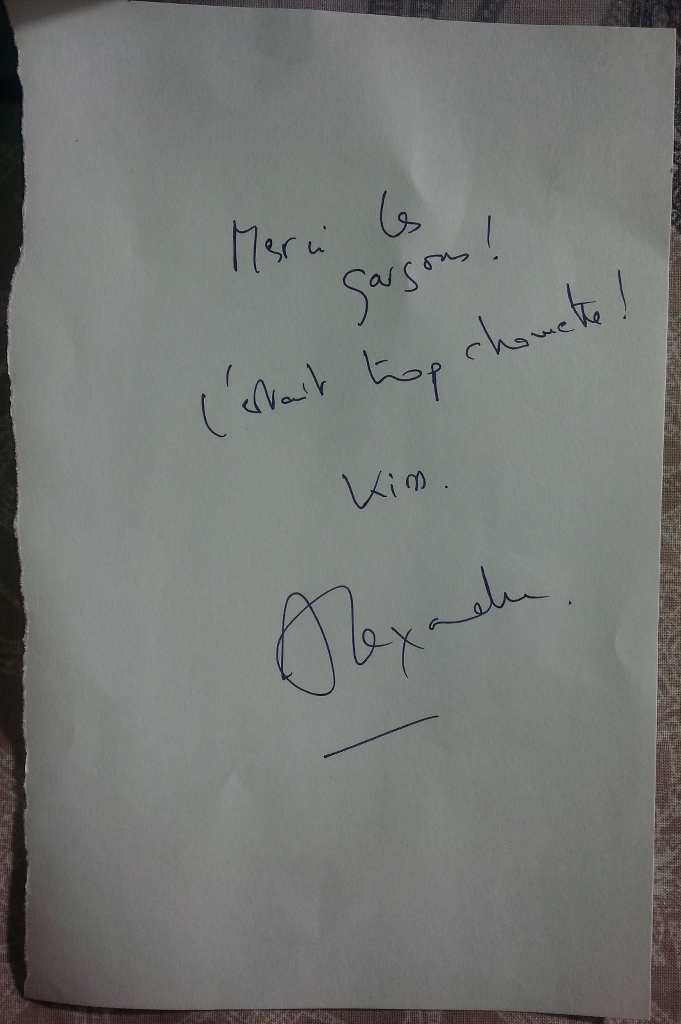 Merci les
garçons !
C'était trop chouette !
Kim.
Alexandre.